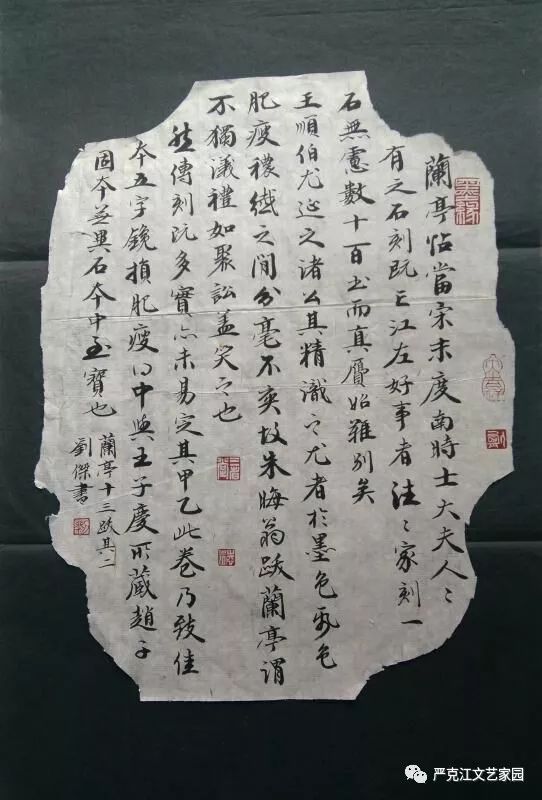 蘭亭帖當宋未度南時士大夫人〻
有之石刻既亡江左好事者往〻家刻一
石無慮數十百本而真贋始難别矣
王順伯尤延之諸公其精識之尤者於墨色帋色
肥瘦穠纖之間分毫不爽故朱晦翁跋蘭亭謂
不獨議禮如聚訟盖笑之也
然傳刻既多實亦未易定其甲乙此卷乃致佳
本五字鑱損肥瘦得中與王子慶所藏趙子
固本無異石本中至寶也
蘭亭十三跋其二
劉傑書
严克江文艺家园